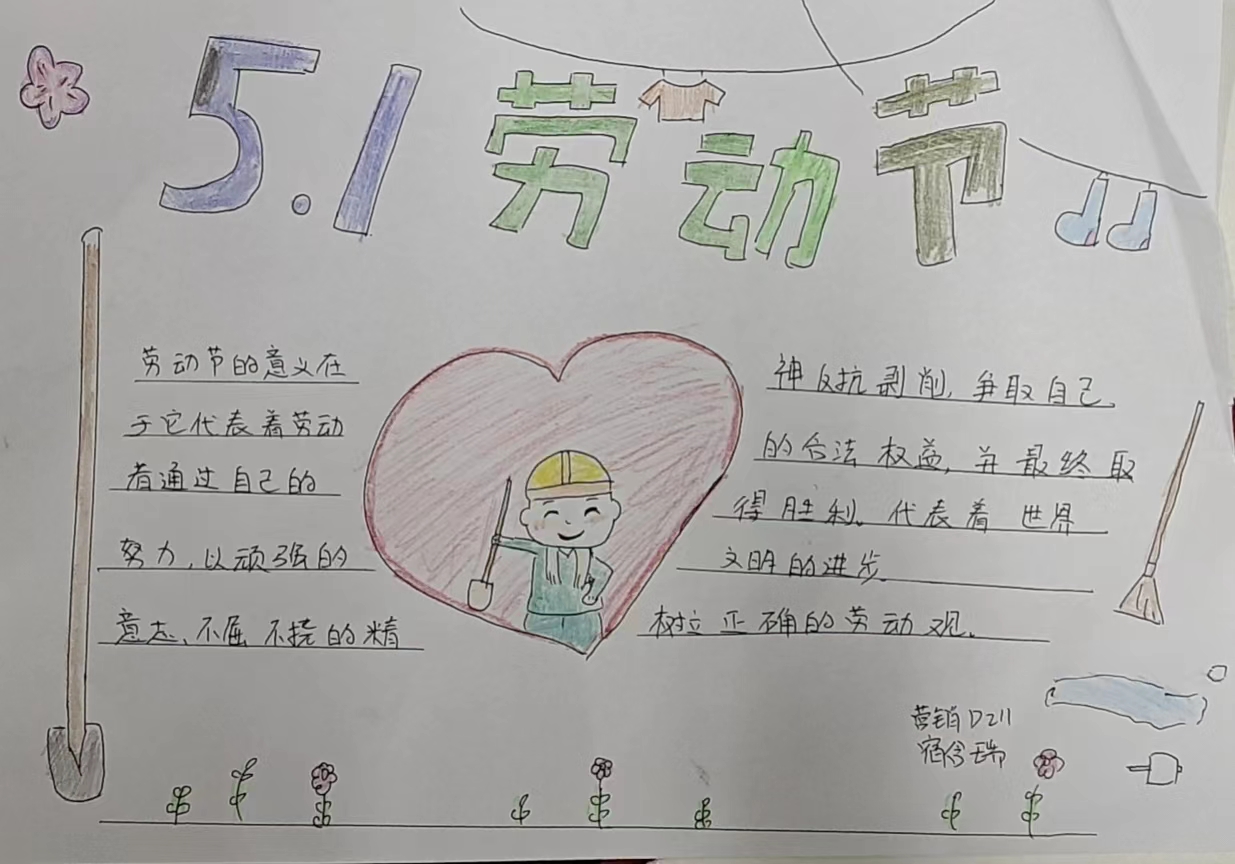 5.1 劳动节
劳动节的意义在
于它代表着劳动
者通过自己的
努力,以顽强的
意志、不屈不挠的精
神反抗剥削,争取自己
的合法权益,并最终取
得胜利。代表着世界
文明的进步
树立正确的劳动观。
营销D211
宿含瑞